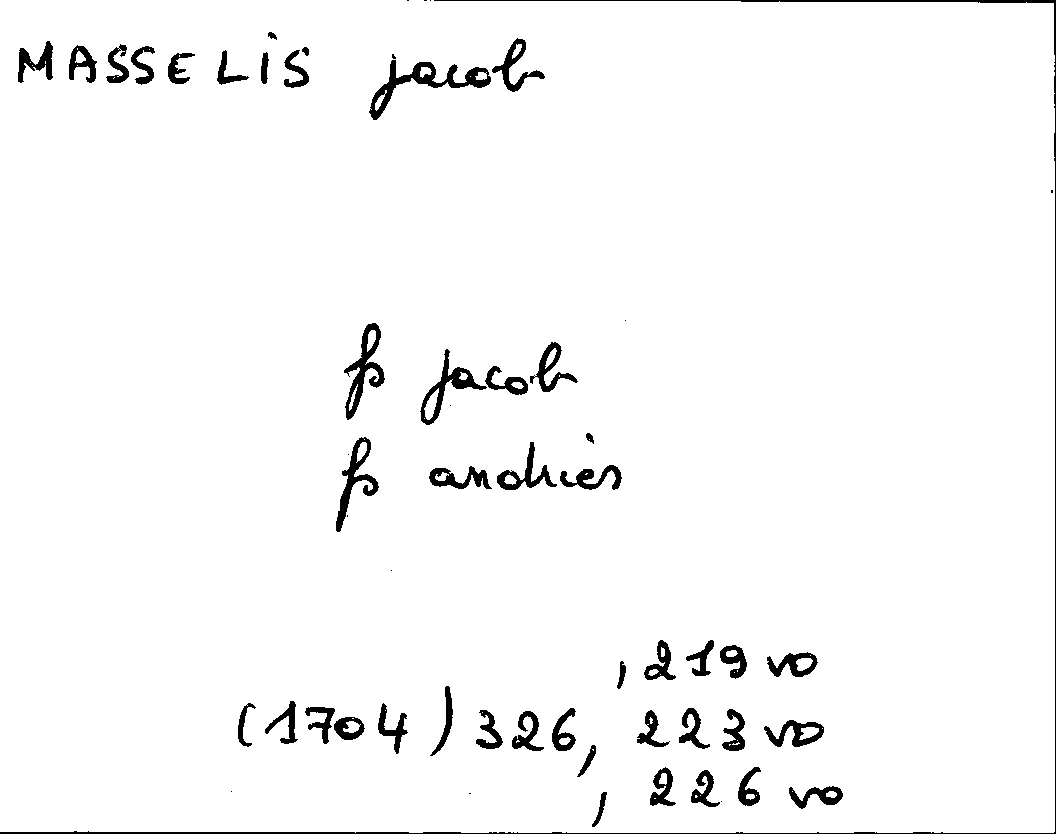 MASSELIS jacob
fs jacob
fs andries
, 219 vo
(1704) 326, 223 vo
, 226 vo